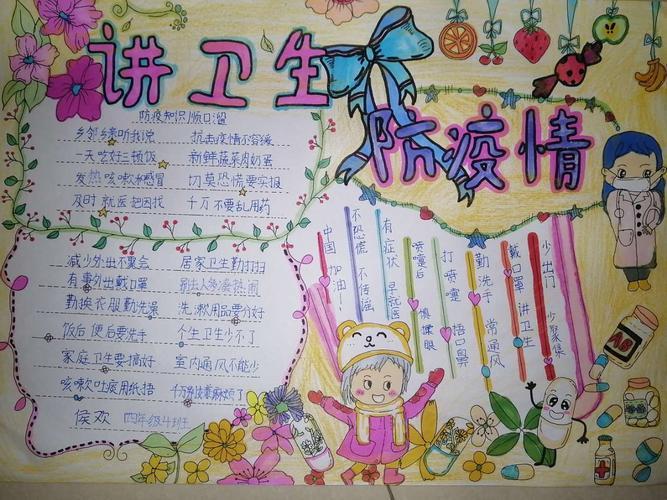 讲卫生
防疫情
防疫知识顺口溜
乡邻乡亲听我说 抗击疫情不容缓
一天吃好三顿饭 新鲜蔬菜肉奶蛋
发热咳嗽和感冒 切莫恐慌要实报
及时就医把因找 千万不要乱用药
减少外出不聚会 居家卫生勤打扫
有事外出戴口罩 别去人多凑热闹
勤换衣服勤洗澡 洗漱用品要分好
饭后便后要洗手 个人卫生少不了
家庭卫生要搞好 室内通风不能少
咳嗽吐痰用纸捂
侯欢 四年级4班
中国加油！
不恐慌 不传谣
有症状 早就医
喷嚏后 慎揉眼
打喷嚏 捂口鼻
勤洗手 常通风
戴口罩 讲卫生
少出门 少聚集